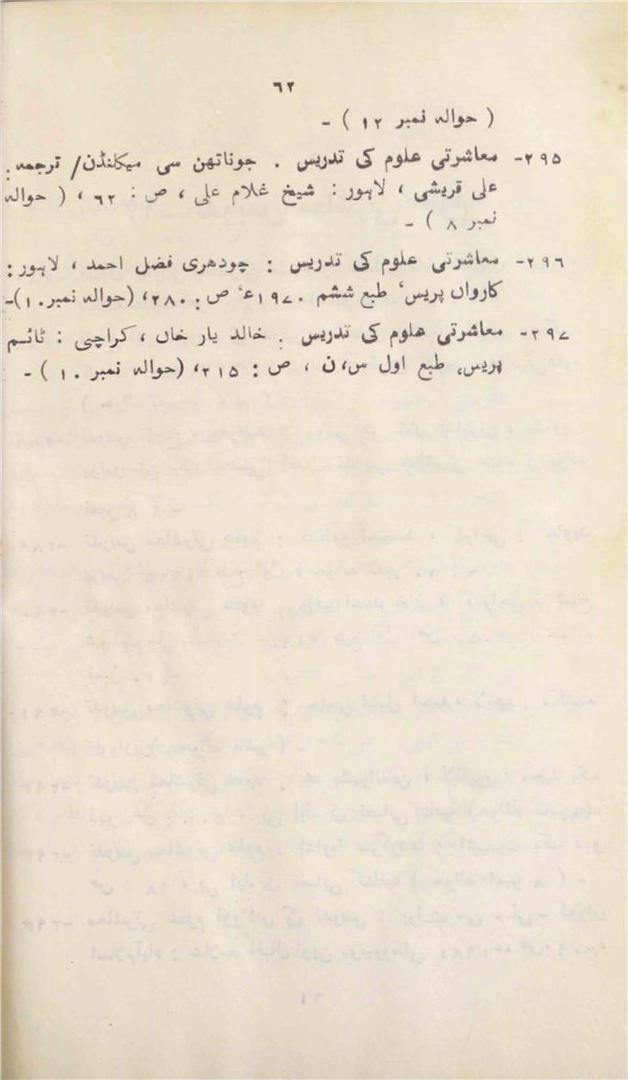 ٦٢
( حوالہ نمبر ١٢ ) -
٢٩٥- معاشرتی علوم کی تدریس . جوناتھن سی میکلنڈن/ ترجمہ :
علی قریشی ، لاہور : شیخ غلام علی ، ص : ٦٢ ، ( حوالہ
نمبر ٨ ) -
٢٩٦- معاشرتی علوم کی تدریس : چودھری فضل احمد ، لاہور :
کارواں پریس، طبع ششم ١٩٧٠ء، ص : ٢٨٠، (حوالہ نمبر ١٠)-
٢٩٧- معاشرتی علوم کی تدریس . خالد یار خاں ، کراچی : ٹائم
پریس، طبع اول س،ن ، ص : ٢١٥، (حوالہ نمبر ١٠ ) -